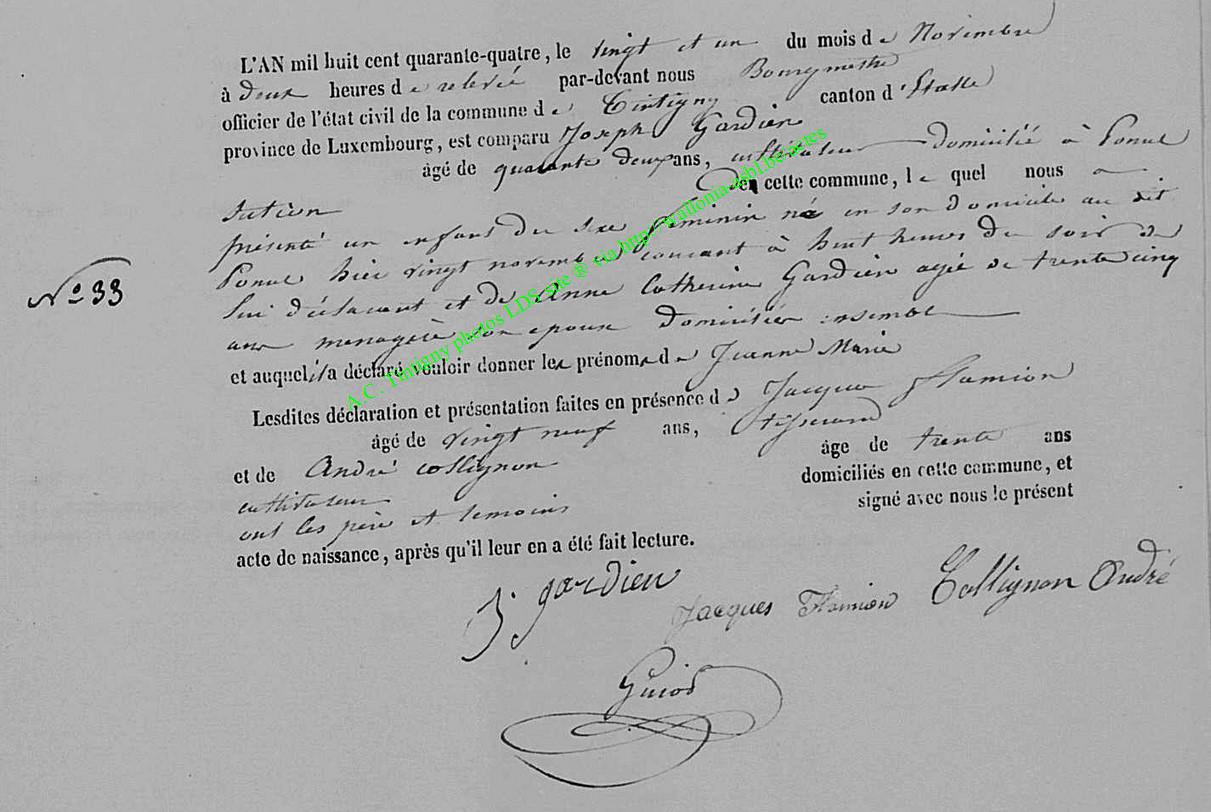 L'AN mil huit cent quarante-quatre, le vingt et un du mois de Novembre
à deux heures de relevée par-devant nous Bourgmestre
officier de l'état civil de la commune de Tintigny canton d'Etalle
province de Luxembourg, est comparu Joseph Gardien
âgé de quarante deux ans, cultivateur domicilié à Ponce
section de cette commune, lequel nous a
présenté un enfant du sexe féminin né en son domicile au dit
Ponce hier vingt novembre courant à huit heures du soir de
lui déclarant et de Anne Catherine Gardien agée de trente cinq
ans menagère son epouse domiciliés ensemble
et auquel il a déclaré vouloir donner les prénoms de Jeanne Marie
Lesdites déclaration et présentation faites en présence de Jacques Flamion
âgé de vingt neuf ans, tisserand
et de André collignon âge de trente ans
cultivateur domiciliés en cette commune, et
ont les père et temoins signé avec nous le présent
acte de naissance, après qu'il leur en a été fait lecture.
N° 33
J. gardien
Jacques Flamion Collignon André
Guiot
A.C. Tintigny photos LDS site ® via http://wallonia-asbl.be/actes